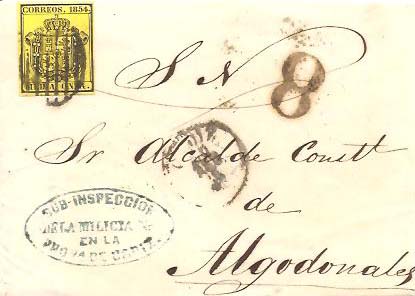 CORREOS. 1854.
S N
8
Sr Alcalde Constl
de
Algodonales
SUB-INSPECCION
DE LA MILICIA
EN LA
DE CADIZ